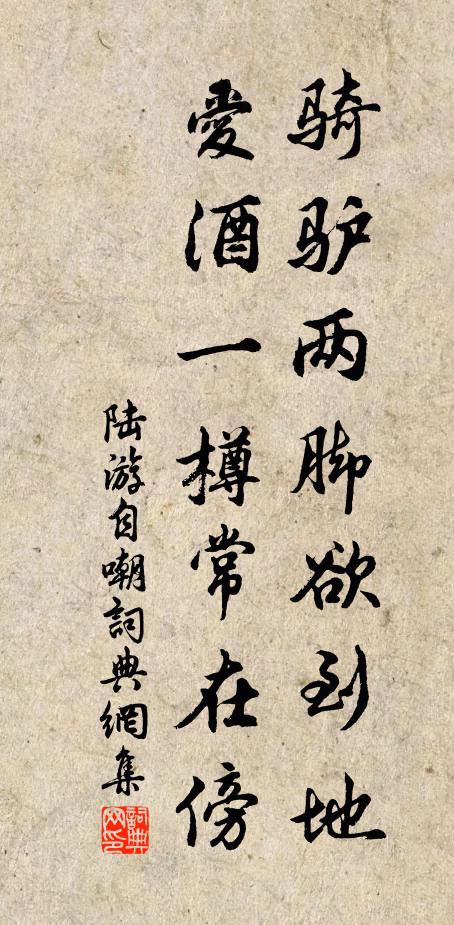 骑驴两脚欲到地
愛酒一樽常在傍
陆游自嘲詞典網集
詞典
网印